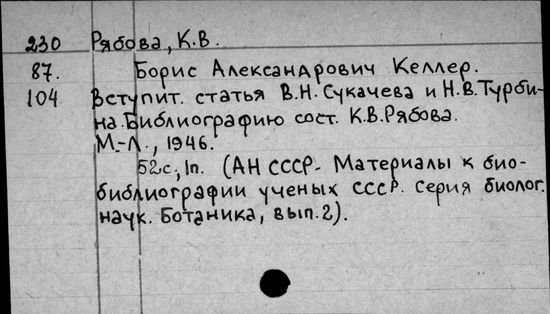 230 Рябова, К.В.
87. Борис Александрович Келлер.
104 Вступит. статья В.Н.Сукачева и Н.В.Турби-
на. Библиографию сост. К.В.Рябова.
М.-Л., 1946.
52с., 1п. (АН СССР. Материалы к био-
библиографии ученых СССР. Серия биолог.
наук. Ботаника, вып.2).